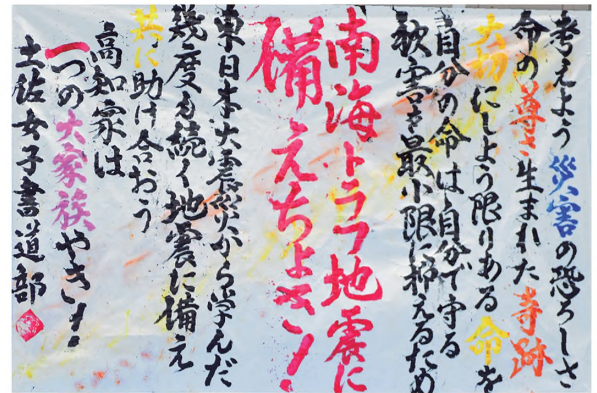 考えよう災害の恐ろしさ
命の尊さ生まれた奇跡
大切にしよう限りある命を
自分の命は自分で守る
被害を最小限に抑えるため
南海トラフ地震に
備えちょき！
東日本大震災から学んだ
幾度も続く地震に備え
共に助け合おう
高知家は
一つの大家族やき！
土佐女子書道部